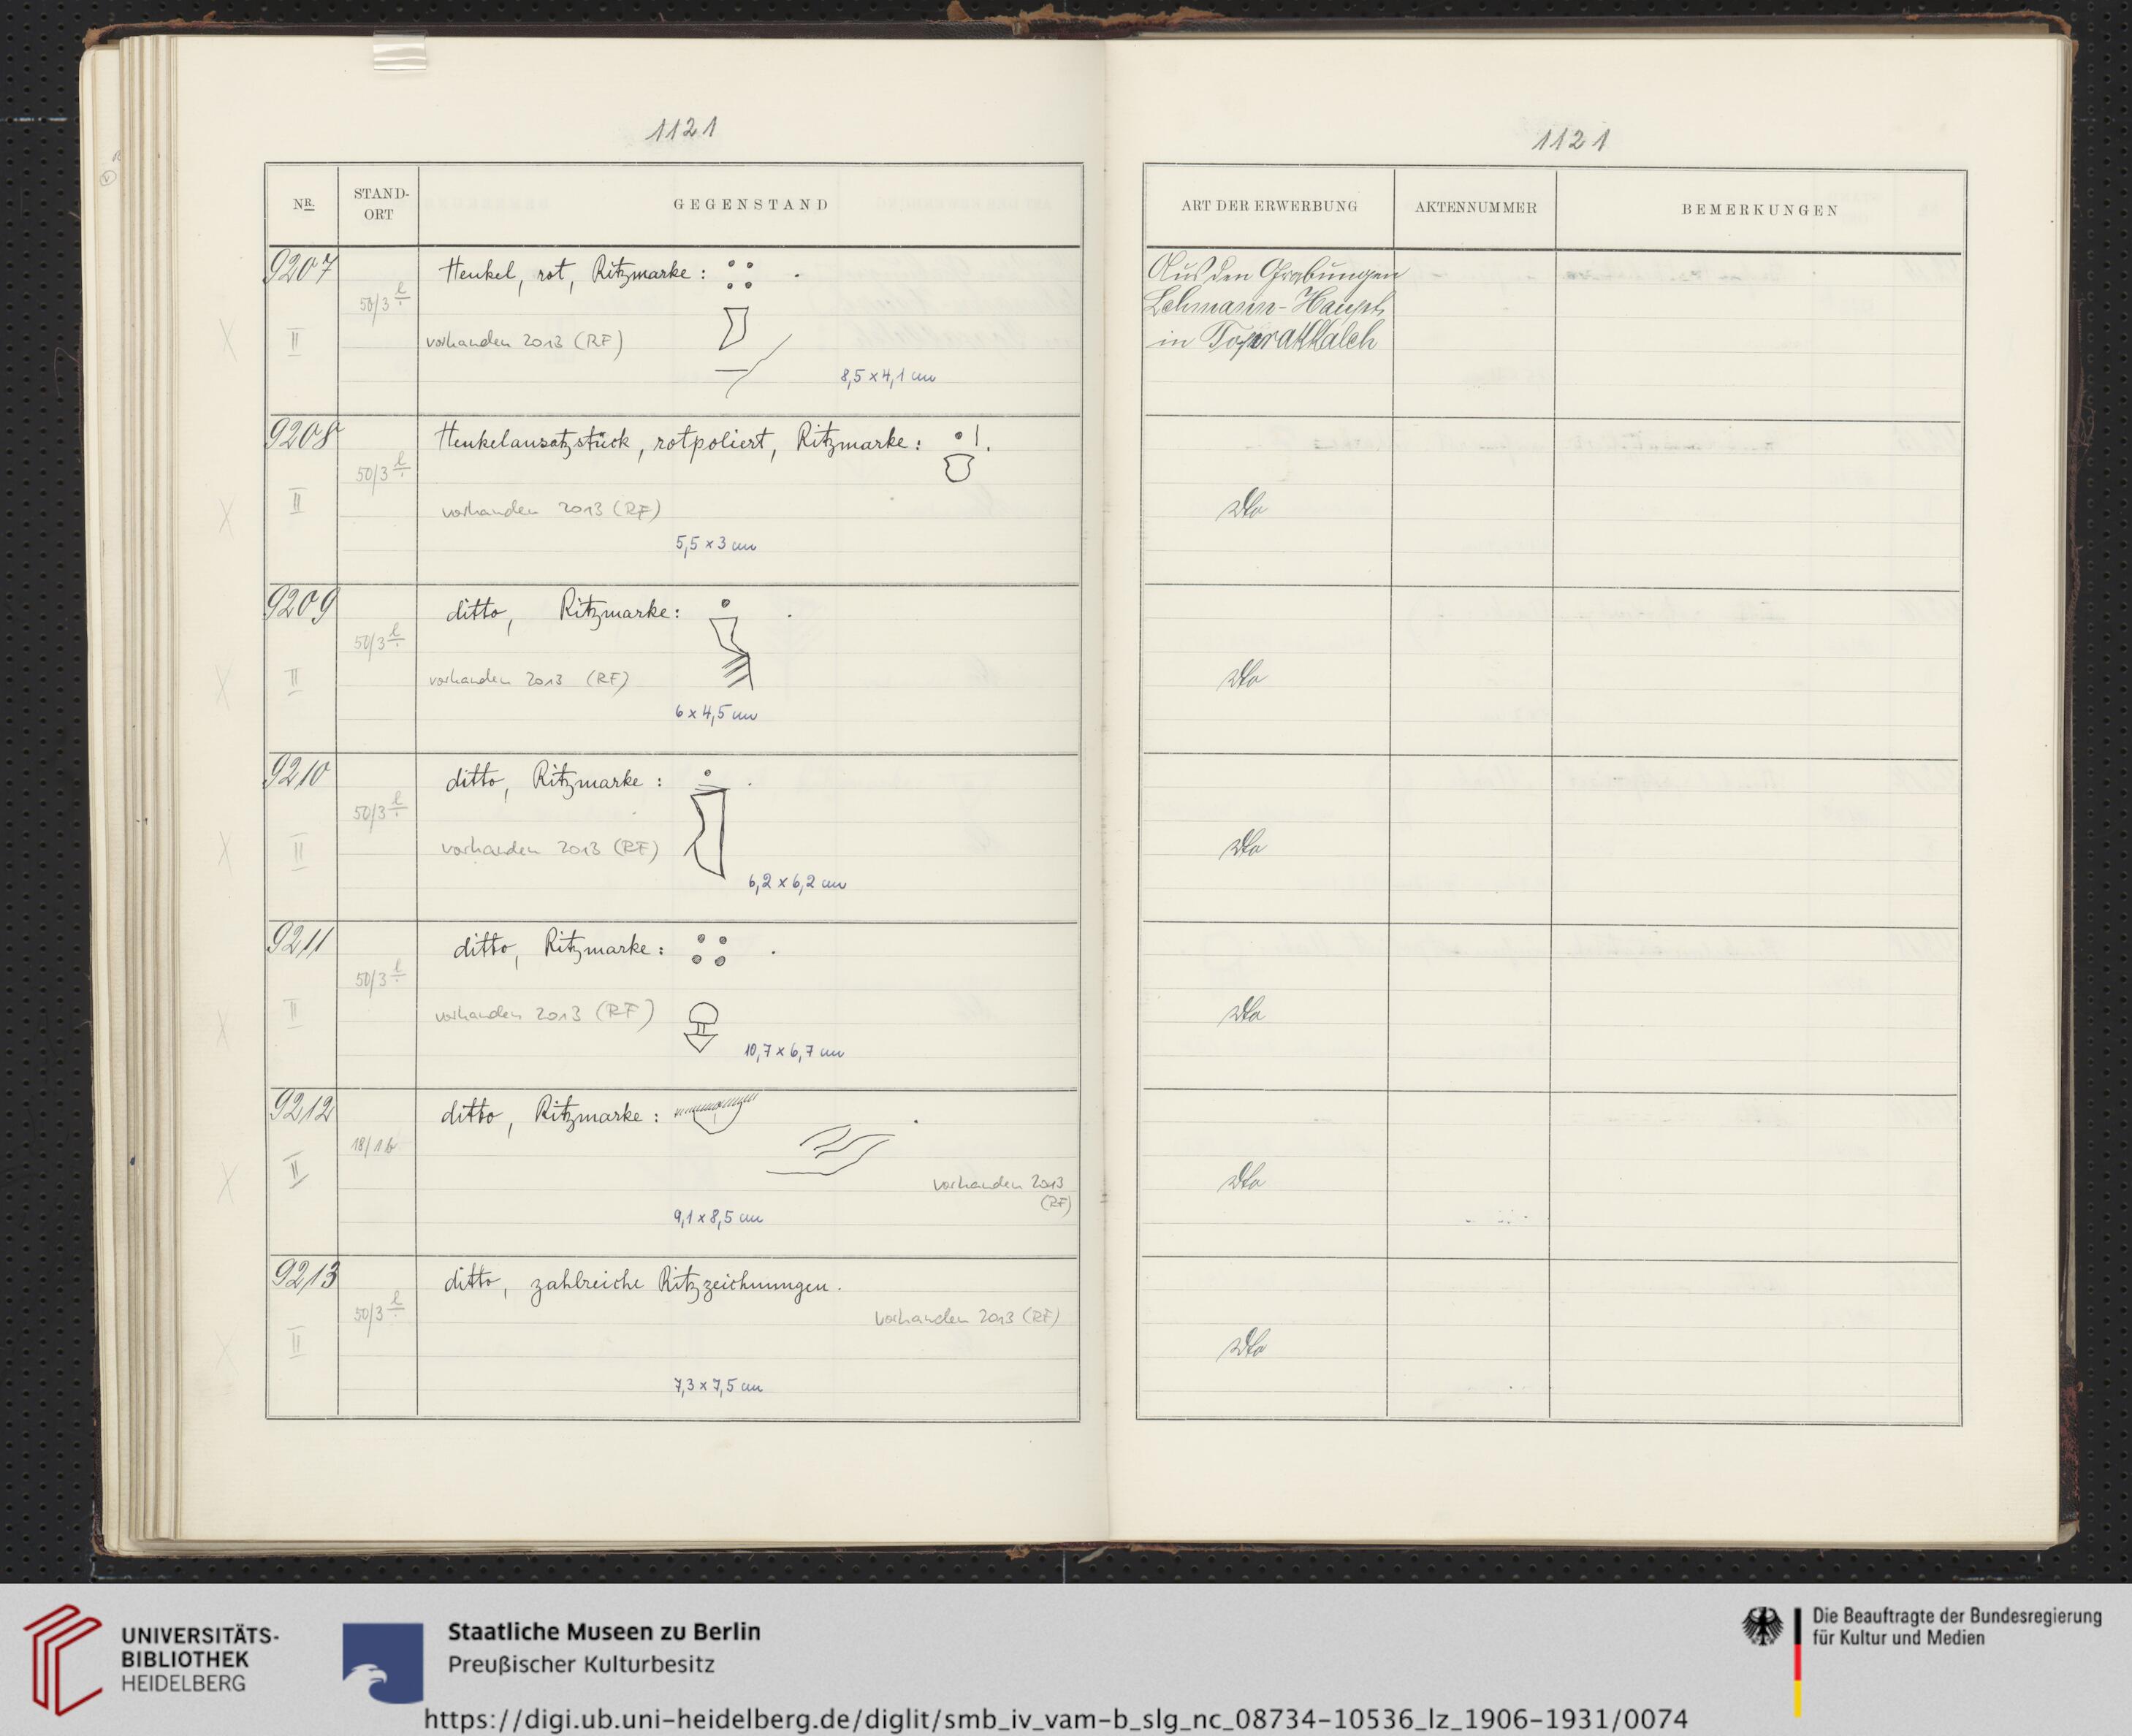 1121
NR.
STAND-
ORT
GEGENSTAND
9207
Henkel, rot, Ritzmarke: .
50/3 l
II
vorhanden 2013 (RF)
8,5 x 4,1 cm
9208
Henkelansatzstück, rotpoliert, Ritzmarke: .
50/3 l
II
vorhanden 2013 (RF)
5,5 x 3 cm
9209
ditto, Ritzmarke: .
50/3 l
II
vorhanden 2013 (RF)
6 x 4,5 cm
9210
ditto, Ritzmarke: .
50/3 l
II
vorhanden 2013 (RF)
6,2 x 6,2 cm
9211
ditto, Ritzmarke: .
50/3 l
II
vorhanden 2013 (RF)
10,7 x 6,7 cm
9212
ditto, Ritzmarke: .
18/1b
II
vorhanden 2013
(RF)
9,1 x 8,5 cm
9213
ditto, zahlreiche Ritzzeichnungen.
50/3 l
vorhanden 2013 (RF)
II
7,3 x 7,5 cm
1121
ART DER ERWERBUNG
AKTENNUMMER
BEMERKUNGEN
Aus den Grabungen
Lehmann-Haupt
in Toprakkaleh
dto
dto
dto
dto
dto
dto
UNIVERSITÄTS-
BIBLIOTHEK
HEIDELBERG
Staatliche Museen zu Berlin
Preußischer Kulturbesitz
Die Beauftragte der Bundesregierung
für Kultur und Medien
https://digi.ub.uni-heidelberg.de/diglit/smb_iv_vam-b_slg_nc_08734-10536_lz_1906-1931/0074